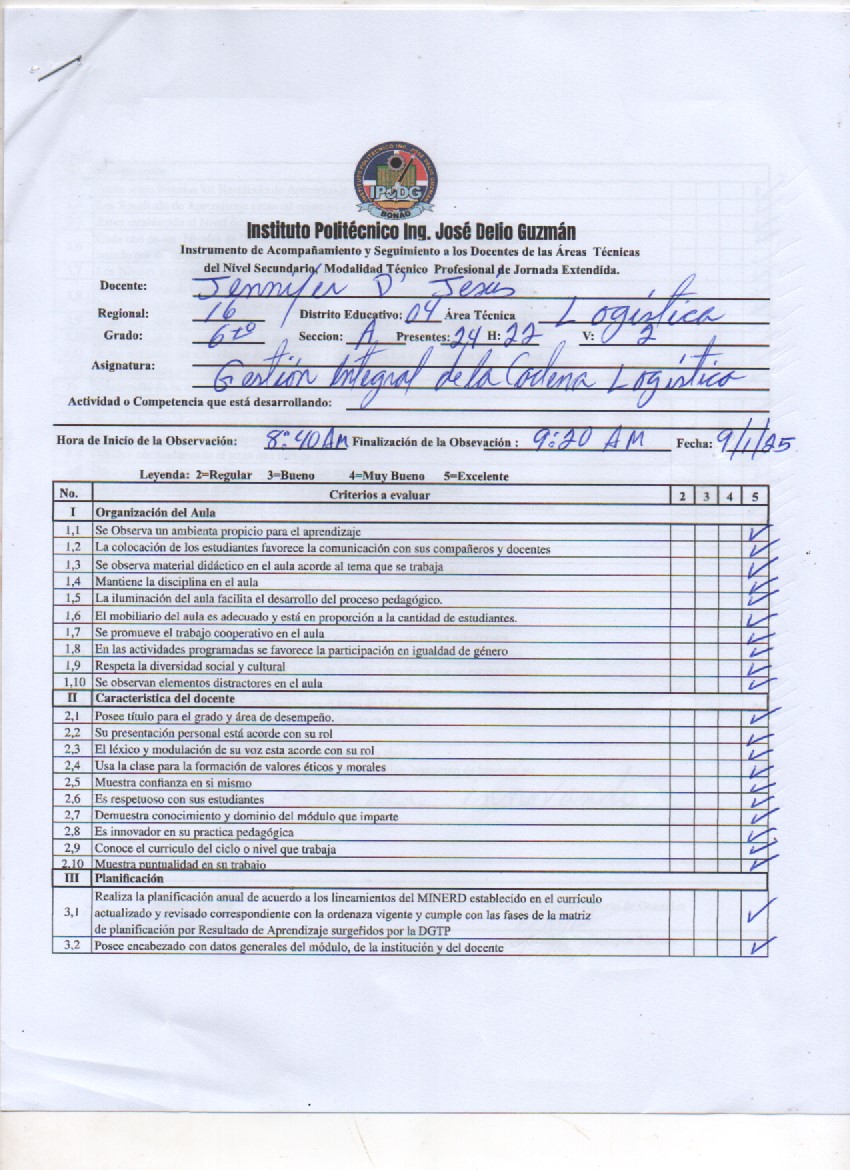 INSTITUTO POLITÉCNICO ING. JOSÉ DELIO GUZMÁN
IPJDG
BONAO
Instituto Politécnico Ing. José Delio Guzmán
Instrumento de Acompañamiento y Seguimiento a los Docentes de las Áreas Técnicas
del Nivel Secundario/ Modalidad Técnico Profesional de Jornada Extendida.
Docente: Jennifer D' Jesús
Regional: 16 Distrito Educativo: 04 Área Técnica Logística
Grado: 6to Seccion: A Presentes: 24 H: 22 V: 2
Asignatura: Gestión Integral de la Cadena Logística
Actividad o Competencia que está desarrollando:
Hora de Inicio de la Observación: 8:40 AM Finalización de la Obsevación : 9:20 AM Fecha: 9/1/25
Leyenda: 2=Regular 3=Bueno 4=Muy Bueno 5=Excelente
No. Criterios a evaluar 2 3 4 5
I Organización del Aula
1,1 Se Observa un ambienta propicio para el aprendizaje ✓
1,2 La colocación de los estudiantes favorece la comunicación con sus compañeros y docentes ✓
1,3 Se observa material didáctico en el aula acorde al tema que se trabaja ✓
1,4 Mantiene la disciplina en el aula ✓
1,5 La iluminación del aula facilita el desarrollo del proceso pedagógico. ✓
1,6 El mobiliario del aula es adecuado y está en proporción a la cantidad de estudiantes. ✓
1,7 Se promueve el trabajo cooperativo en el aula ✓
1,8 En las actividades programadas se favorece la participación en igualdad de género ✓
1,9 Respeta la diversidad social y cultural ✓
1,10 Se observan elementos distractores en el aula ✓
II Caracteristica del docente
2,1 Posee título para el grado y área de desempeño. ✓
2,2 Su presentación personal está acorde con su rol ✓
2,3 El léxico y modulación de su voz esta acorde con su rol ✓
2,4 Usa la clase para la formación de valores éticos y morales ✓
2,5 Muestra confianza en si mismo ✓
2,6 Es respetuoso con sus estudiantes ✓
2,7 Demuestra conocimiento y dominio del módulo que imparte ✓
2,8 Es innovador en su practica pedagógica ✓
2,9 Conoce el curriculo del ciclo o nivel que trabaja ✓
2,10 Muestra puntualidad en su trabajo ✓
III Planificación
3,1 Realiza la planificación anual de acuerdo a los lineamientos del MINERD establecido en el currículo
actualizado y revisado correspondiente con la ordenaza vigente y cumple con las fases de la matriz ✓
de planificación por Resultado de Aprendizaje surgefidos por la DGTP
3,2 Posee encabezado con datos generales del módulo, de la institución y del docente ✓